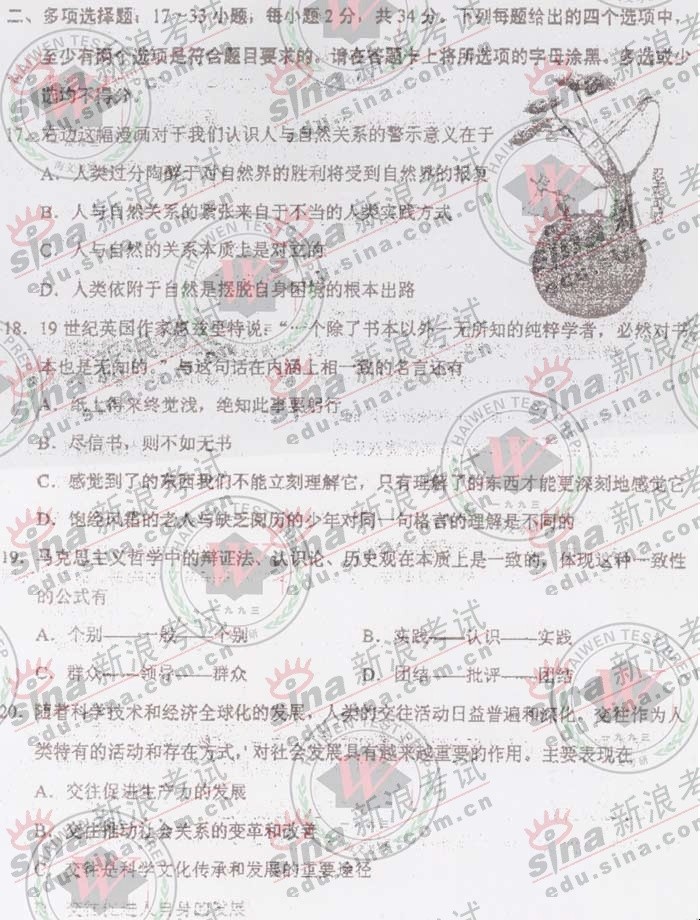 二、多项选择题：17～33小题，每小题2分，共34分。下列每题给出的四个选项中，
至少有两个选项是符合题目要求的。请在答题卡上将所选项的字母涂黑。多选或少
选均不得分。
17．右边这幅漫画对于我们认识人与自然关系的警示意义在于
A．人类过分陶醉于对自然界的胜利将受到自然界的报复
B．人与自然关系的紧张来自于不当的人类实践方式
C．人与自然的关系本质上是对立的
D．人类依附于自然是摆脱自身困境的根本出路
忍无可忍
18．19世纪英国作家 说：“一个除了书本以外一无所知的纯粹学者，必然对书
本也是无知的。”与这句话在内涵上相一致的名言还有
A．纸上得来终觉浅，绝知此事要躬行
B．尽信书，则不如无书
C．感觉到了的东西我们不能立刻理解它，只有理解了的东西才能更深刻地感觉它
D．饱经风霜的老人与缺乏阅历的少年对同一句格言的理解是不同的
19．马克思主义哲学中的辩证法、认识论、历史观在本质上是一致的，体现这种一致性
的公式有
A．个别——一般——个别 B．实践——认识——实践
C．群众——领导——群众 D．团结——批评——团结
20．随着科学技术和经济全球化的发展，人类的交往活动日益普遍和深化。交往作为人
类特有的活动和存在方式，对社会发展具有越来越重要的作用。主要表现在
A．交往促进生产力的发展
B．交往推动社会关系的变革和改善
C．交往是科学文化传承和发展的重要途径
D．交往促进人自身的发展
sina 新浪考试
edu.sina.com.cn
HAIWEN TEST PREP
一九九三